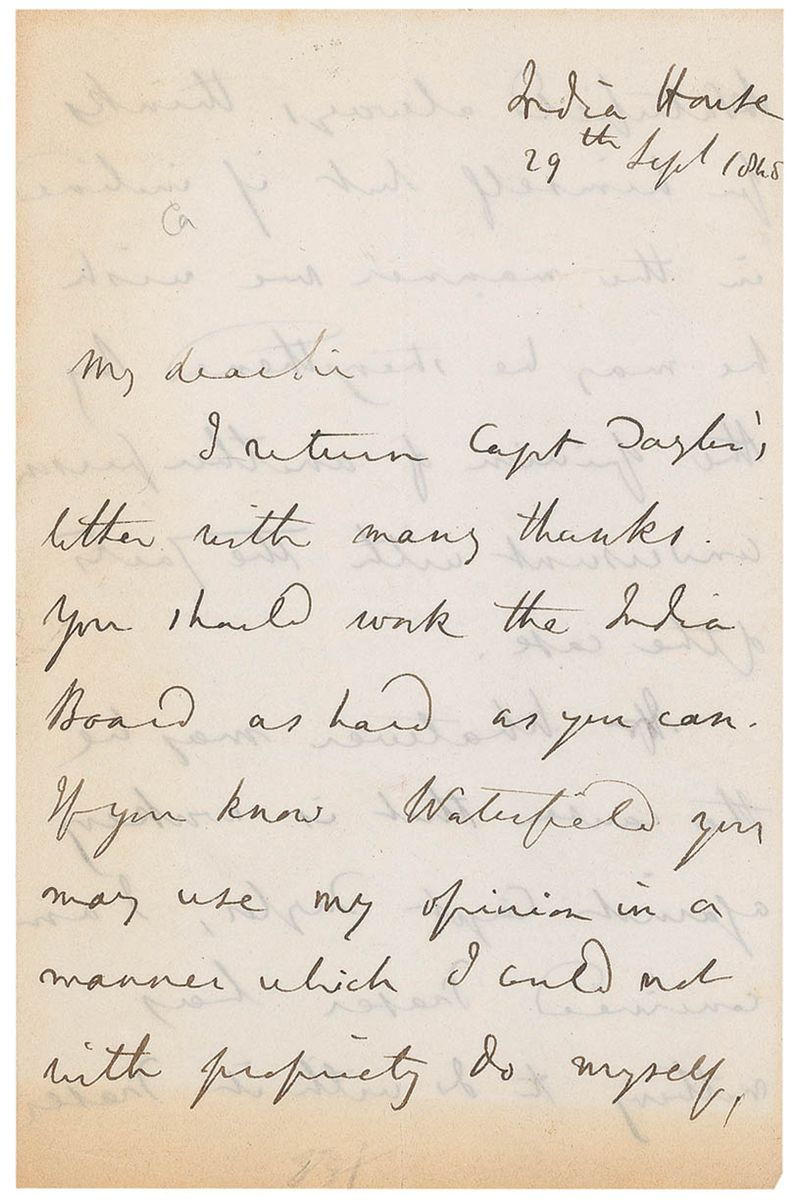 India House
29th Sept 184
Ca
My dear Sir
I return Capt Taylor's
letter with many thanks.
You should work the India
Board as hard as you can.
If you know Waterfield you
may use my opinion in a
manner which I could not
with propriety do myself,